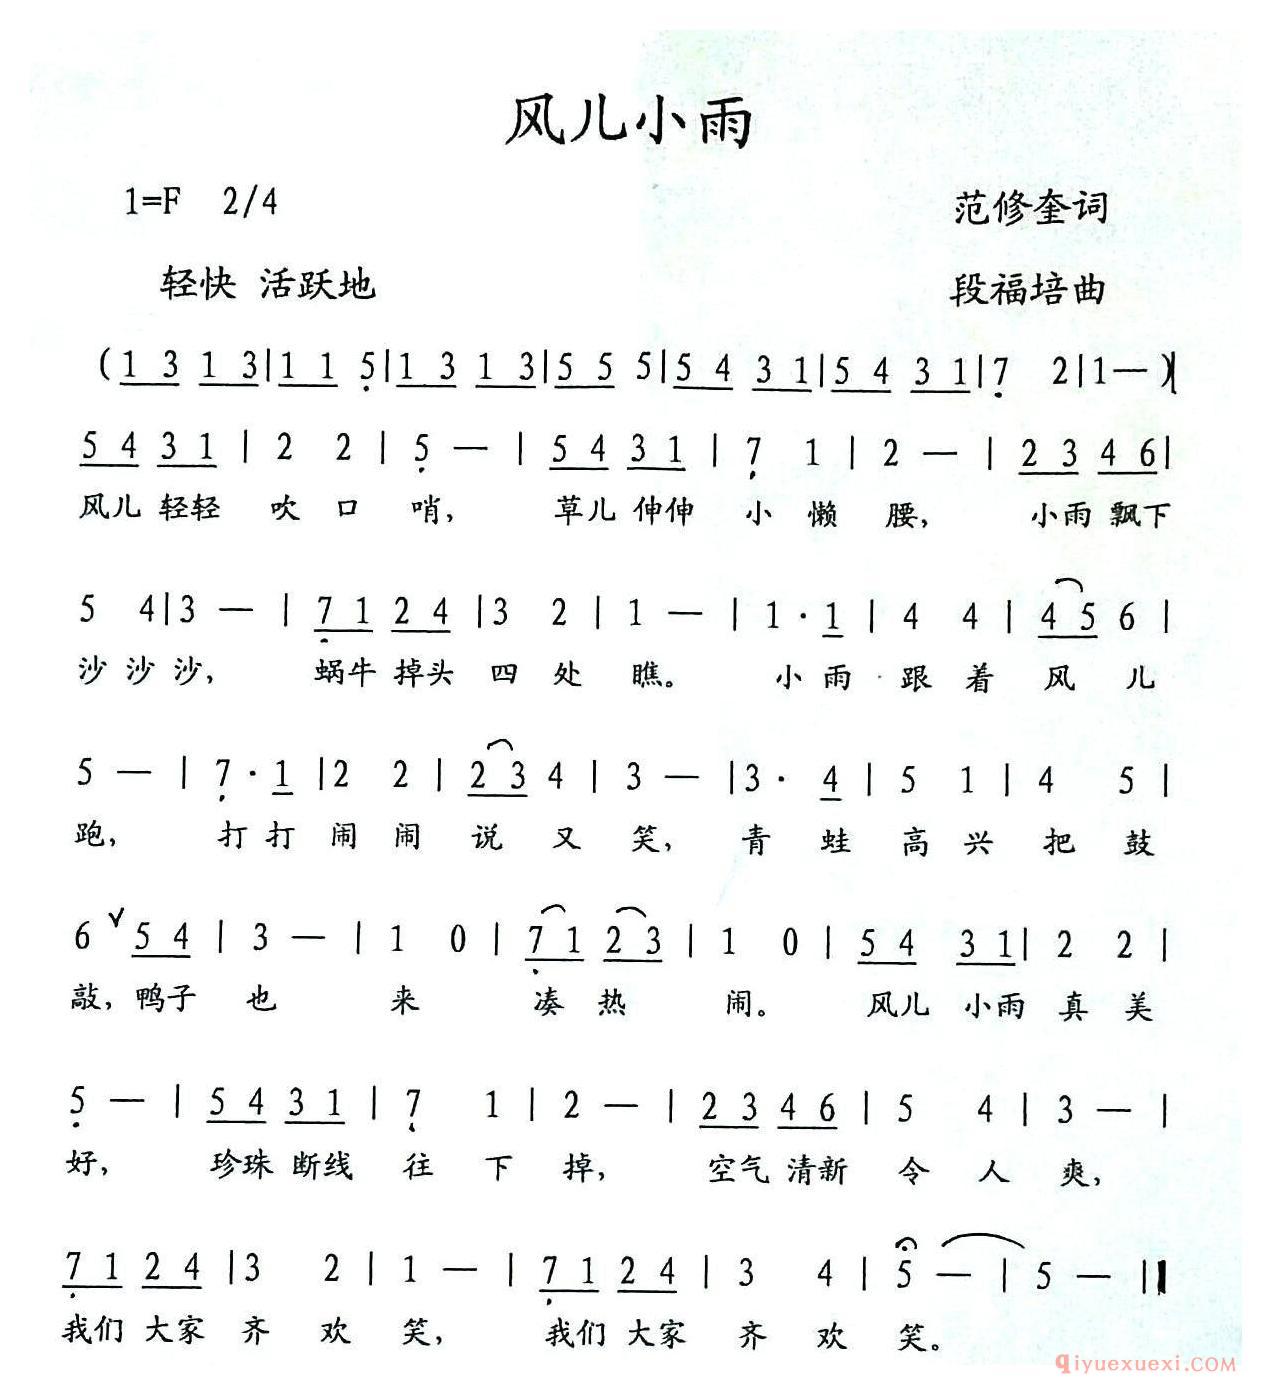 风儿小雨
1=F 2/4 范修奎词
轻快 活跃地 段福培曲
(1 3 1 3|1 1 5|1 3 1 3|5 5 5|5 4 3 1|5 4 3 1|7 2|1—)|
5 4 3 1 | 2 2 | 5 — | 5 4 3 1 | 7 1 | 2 — | 2 3 4 6|
风儿 轻轻 吹 口 哨, 草儿 伸伸 小 懒 腰, 小雨 飘下
5 4|3 — | 7 1 2 4 |3 2 | 1 — | 1 · 1 | 4 4 | 4 5 6 |
沙 沙 沙, 蜗牛 掉头 四 处 瞧。 小 雨 跟 着 风 儿
5 — | 7 · 1 |2 2 | 2 3 4 | 3 — |3 · 4 | 5 1 | 4 5 |
跑, 打 打 闹 闹 说 又 笑, 青 蛙 高 兴 把 鼓
6 ∨ 5 4 | 3 — | 1 0 | 7 1 2 3 | 1 0 | 5 4 3 1| 2 2 |
敲, 鸭子 也 来 凑 热 闹。 风儿 小雨 真 美
5 — | 5 4 3 1 | 7 1 | 2 — | 2 3 4 6 | 5 4 | 3 — |
好, 珍珠 断线 往 下 掉, 空气 清新 令 人 爽,
7 1 2 4 |3 2 | 1 — | 7 1 2 4 | 3 4 | 5 — | 5 — ‖
我们 大家 齐 欢 笑, 我们 大家 齐 欢 笑。
qiyuexuexi.COM